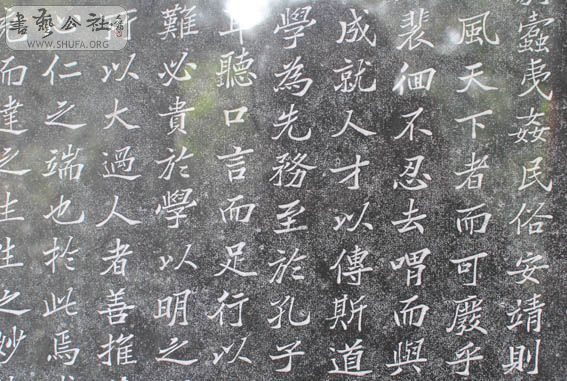 蠹夷姦民俗安靖則
風天下者而可廢乎
裴徊不忍去喟而與
成就人才以傳斯道
學為先務至於孔子
耳聽口言而足行以
難必貴於學以明之
以大過人者善推
仁之端也於此焉
而達之生生之妙
書藝公社
WWW.SHUFA.ORG